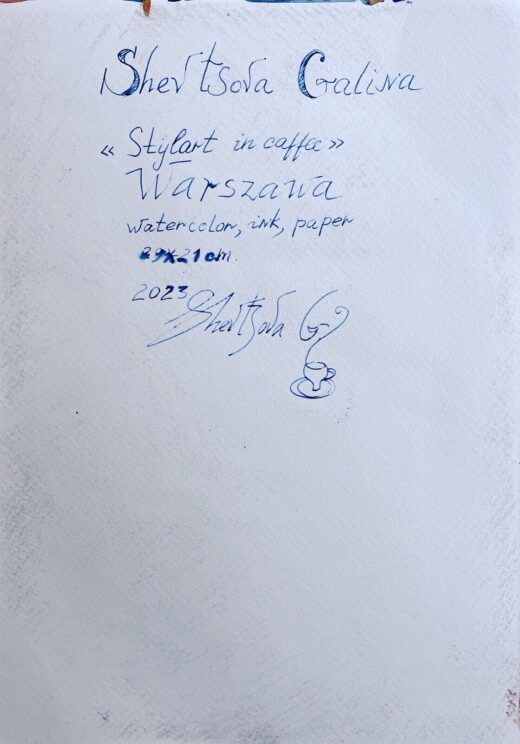 Shevtsova Galina
« Stylart in caffee »
Warszawa
watercolor, ink, paper
29x21cm.
2023 Shevtsova G.